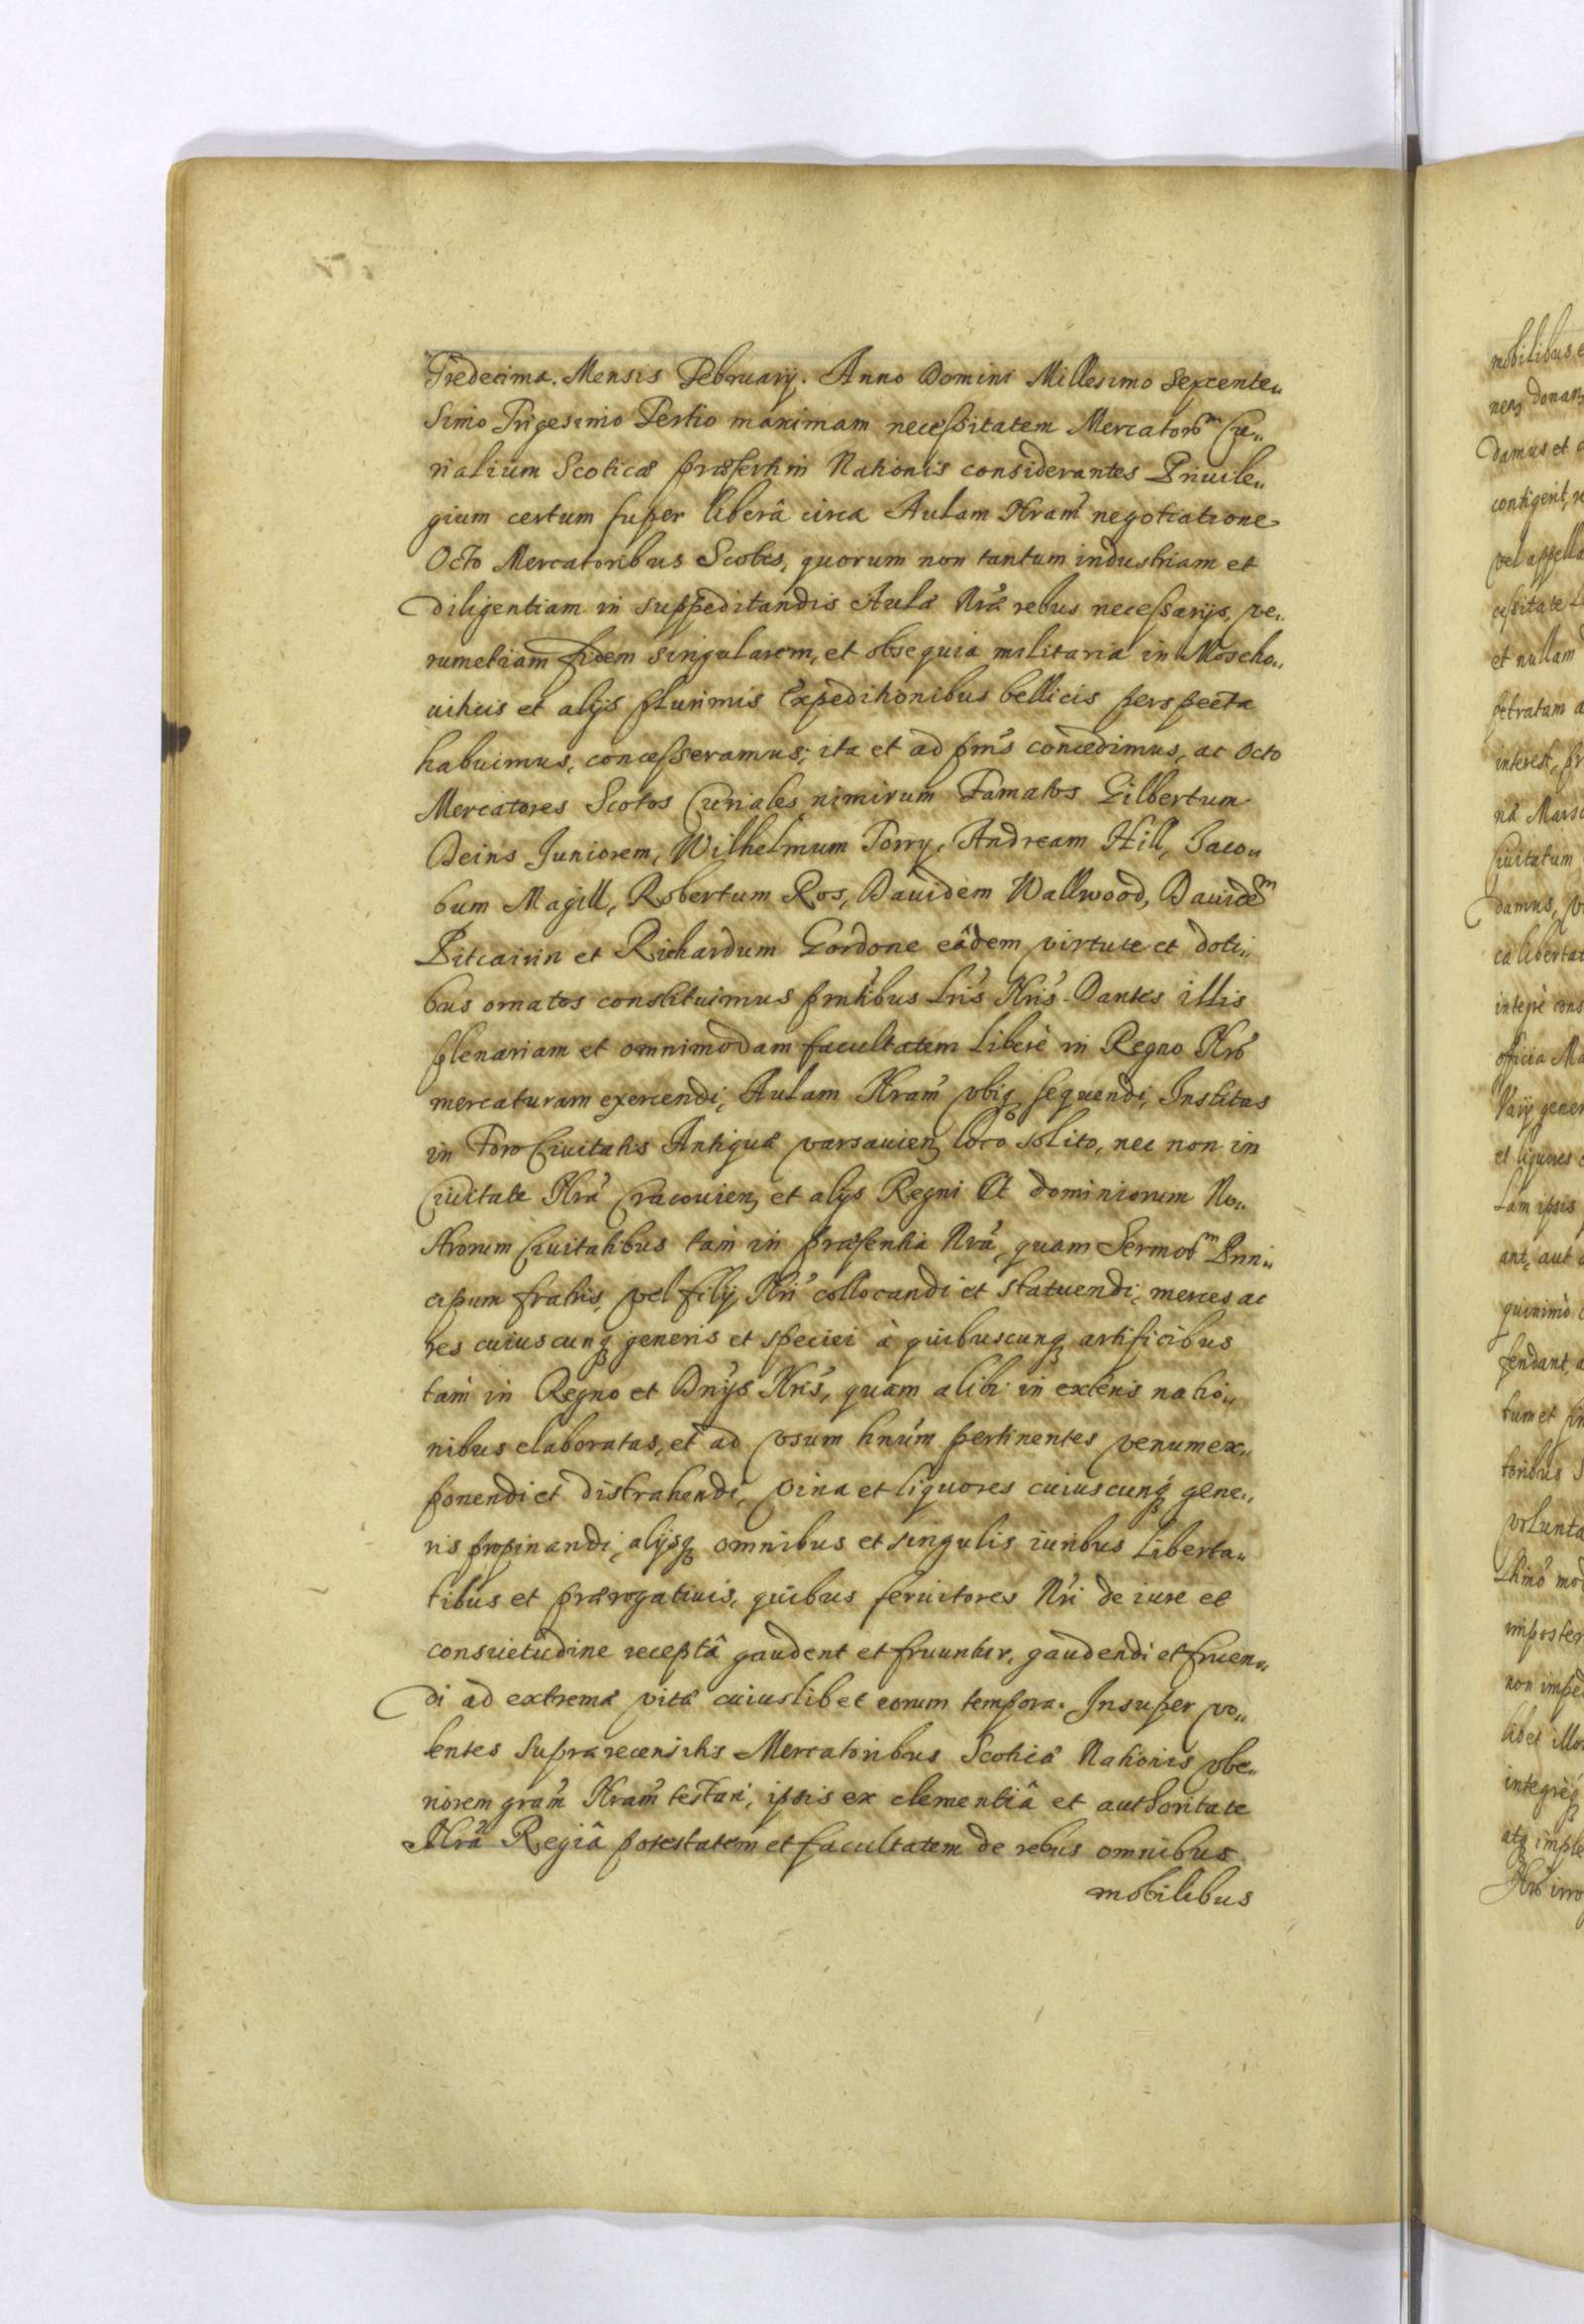 Tredecima. Mensis February. Anno Domini Millesimo Sexcente„
simo Trigesimo Tertio maximam necessitatem Mercatorum Cu„
rialium Scoticæ præsertim Nationis considerantes Priuile„
gium certum super liberâ circa Aulam Nram negotiatione
Octo Mercatoribus Scotis, quorum non tantum industriam et
diligentiam in suppeditandis Aulæ Nræ rebus necessarijs, ve„
rumetiam fidem singularem, et obsequia militaria in Moscho„
uiticis et alijs plurimis Expeditionibus bellicis perspecta
habuimus, concesseramus; ita et ad pns concedimus, ac Octo
Mercatores Scotos Curiales nimirum Famatos Gilbertum
Deins Juniorem, Wilhelmum Torry, Andream Hill, Jaco„
bum Magill, Robertum Ros, Dauidem Wallwood, Dauidem
Pitcairin et Richardum Gordone eâdem virtute et doti„
bus ornatos constituimus pntibus Lris Nris. Dantes illis
plenariam et omnimodam facultatem liberè in Regno Nro
mercaturam exercendi, Aulam Nram vbiq sequendi, Institas
in Foro Ciuitatis Antiquæ varsauien loco solito, nec non in
Ciuitate Nra Cracouien et alijs Regni et dominiorum No„
strorum Ciuitatibus tam in præsentia Nra, quam Sermorum Prin„
cipum fratris, vel filij Nri collocandi et statuendi, merces ac
res cuiuscunq generis et speciei à quibuscunq artificibus
tam in Regno et Dnijs Nris, quam alibi in exteris natio„
nibus elaboratas, et ad vsum hnum pertinentes venum ex„
ponendi et distrahendi, vina et liquores cuiuscunq gene„
ris propinandi, alijsq omnibus et singulis iuribus Liberta„
tibus et prærogatiuis, quibus seruitores Nri de iure et
consuetudine receptâ gaudent et fruuntur, gaudendi et fruen„
di ad extrema vitæ cuiuslibet eorum tempora. Insuper vo„
lentes suprarecensitis Mercatoribus Scoticæ Nationis vbe„
riorem gram Nram testari, ipsis ex clementiâ et authoritate
Nrâ Regiâ potestatem et facultatem de rebus omnibus
mobilibus